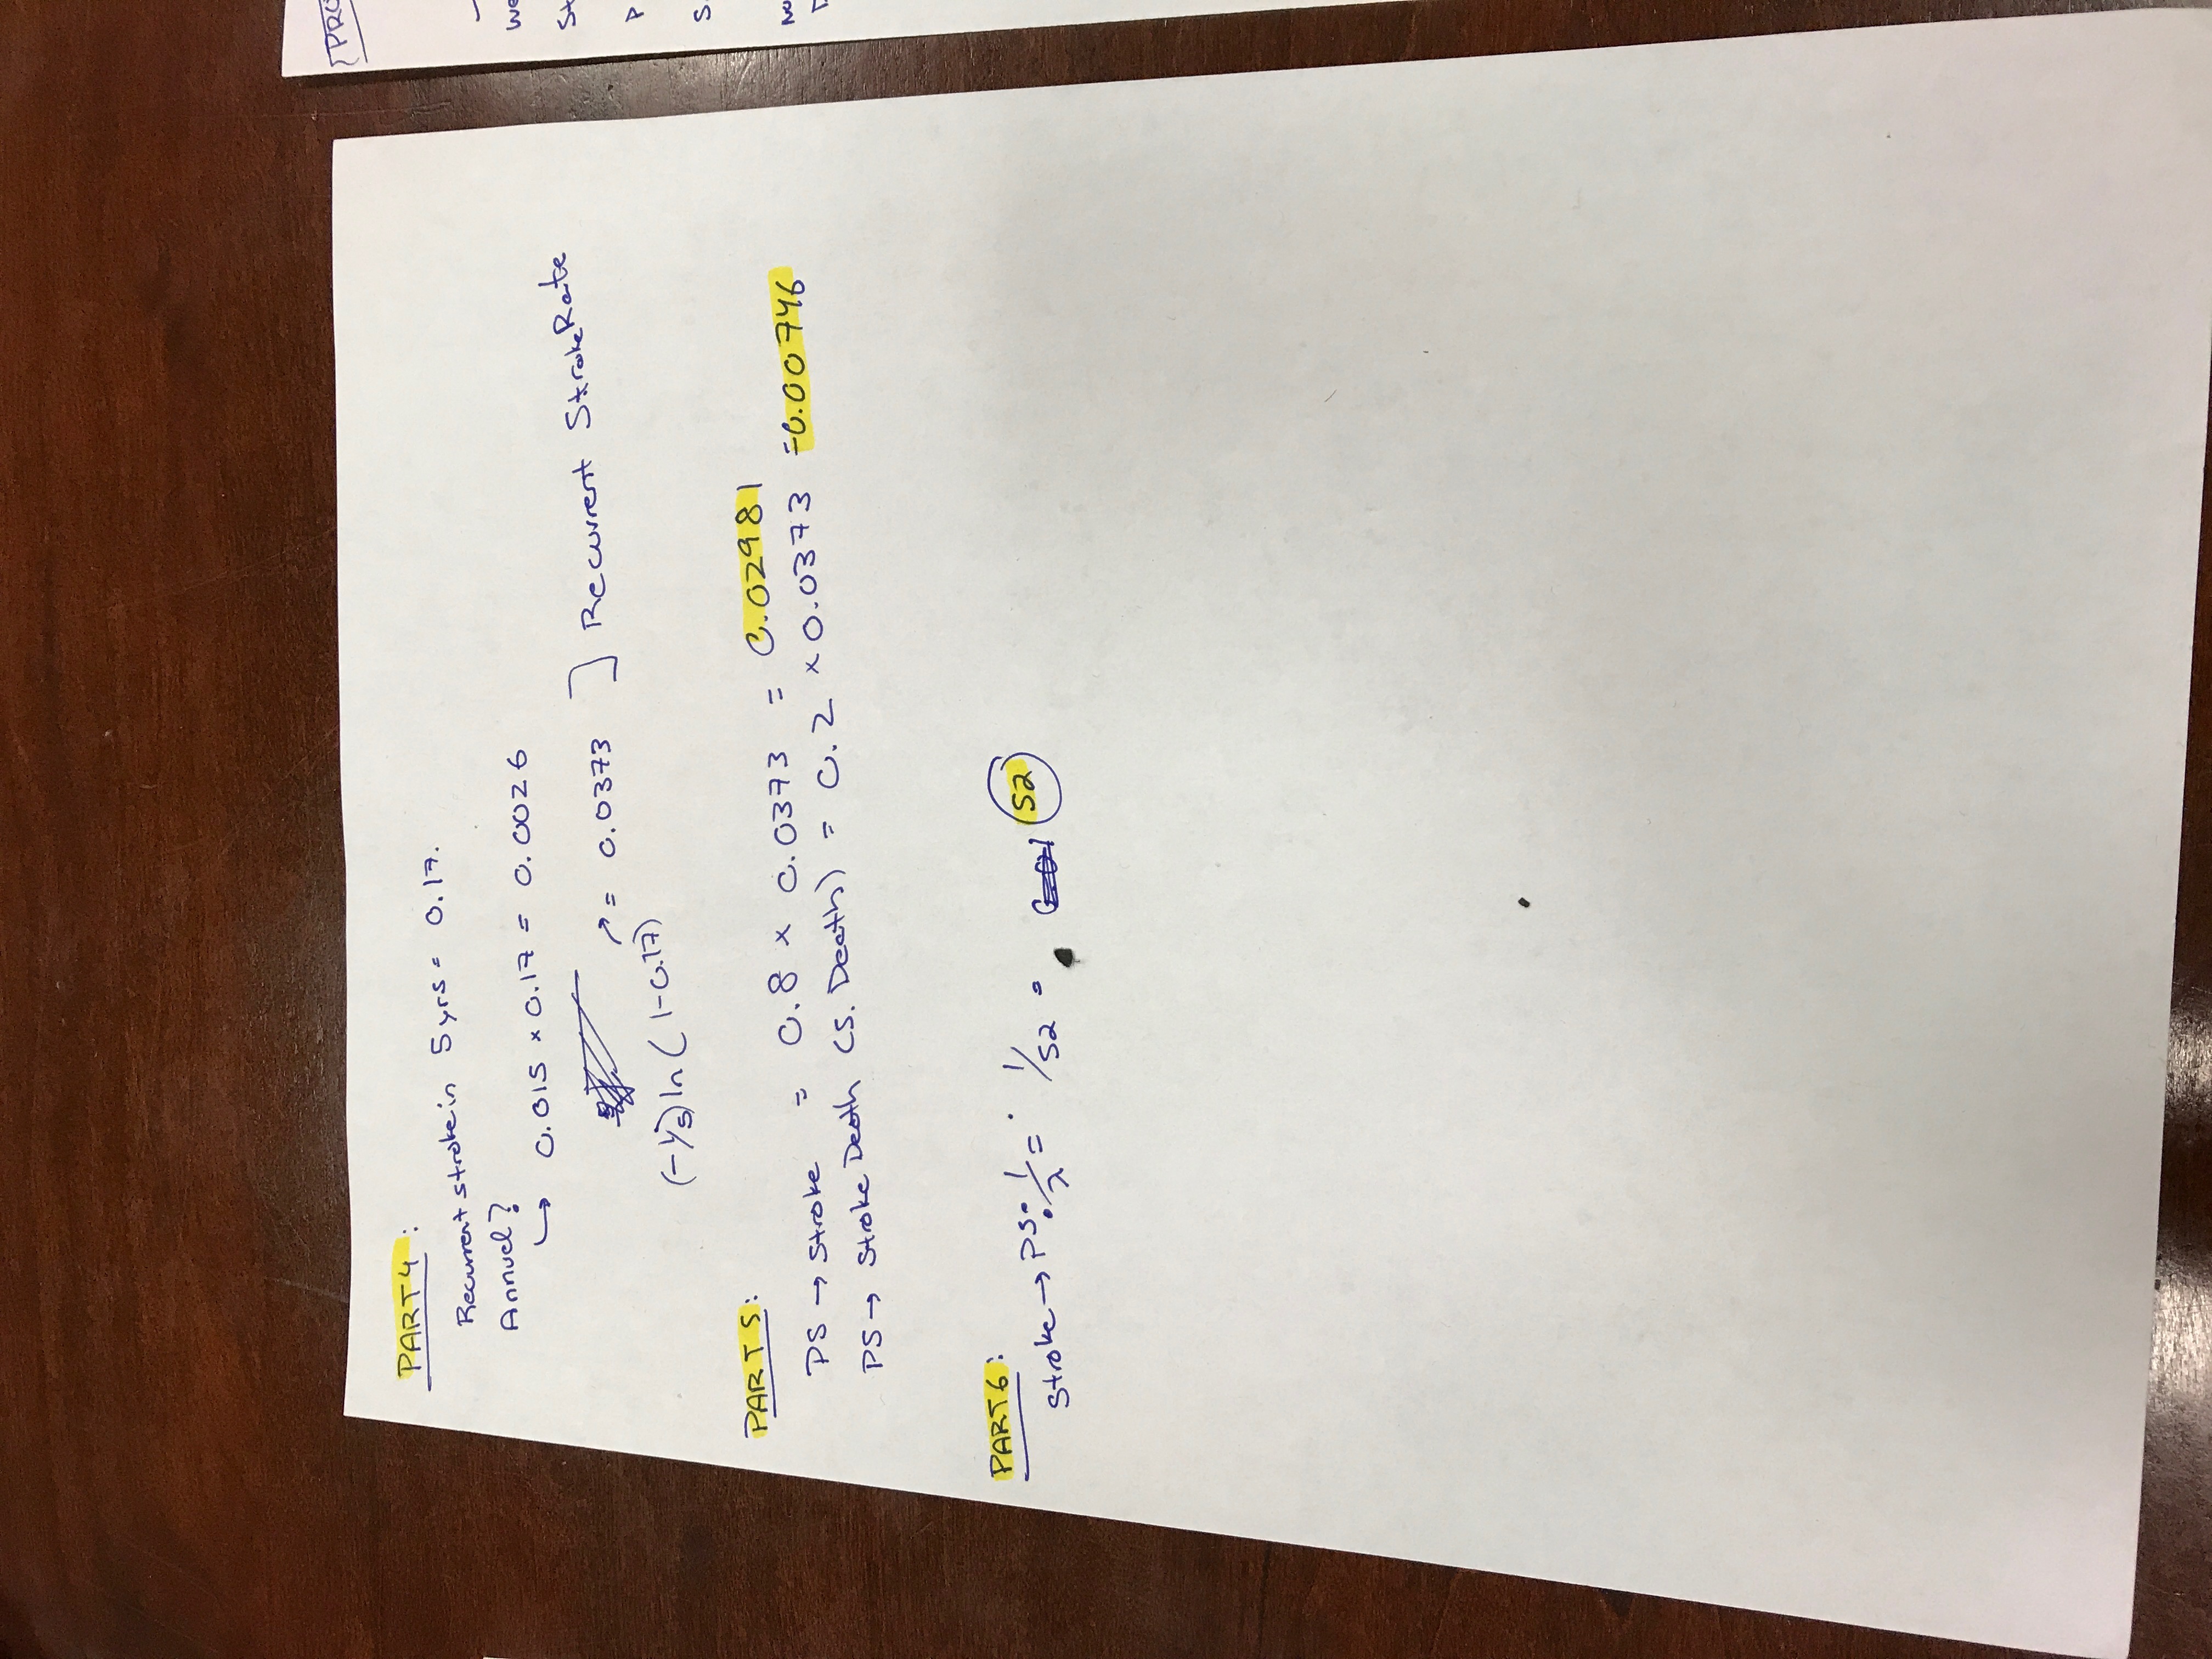 PART 4 :
Recurrent stroke in 5 yrs = 0.17.
Annuel?
↳ 0.015 × 0.17 = 0.0026
↗ = 0.0373 ] Recurrent Stroke Rate
(-1/5) ln ( 1-0.17)
PART 5 :
PS → Stroke = 0.8 × 0.0373 = 0.02981
PS → Stroke Death (S. Death) = 0.2 × 0.0373 = 0.00746
PART 6 :
Stroke → PS: 1/λ = 1/52 = 52
{PRO
we
St
P
S.
No